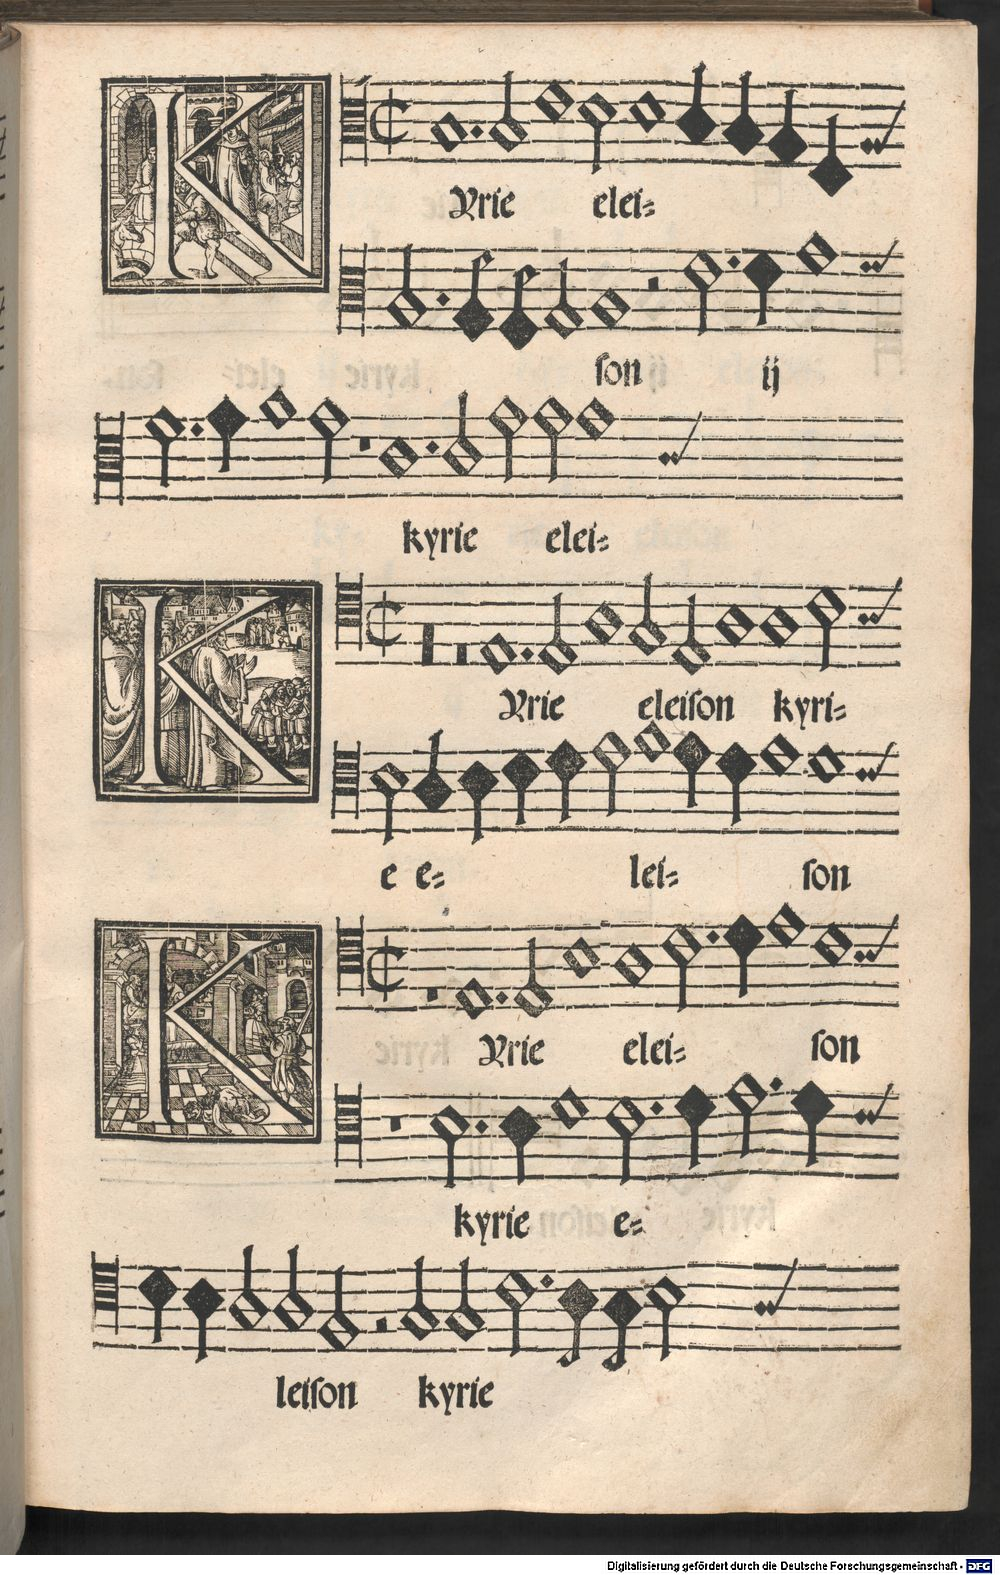 KYrie elei=
son ij
kyrie elei=
KYrie eleison kyri=
e e= lei= son
KYrie elei= son
kyrie e=
leison kyrie
Digitalisierung gefördert durch die Deutsche Forschungsgemeinschaft - DFG